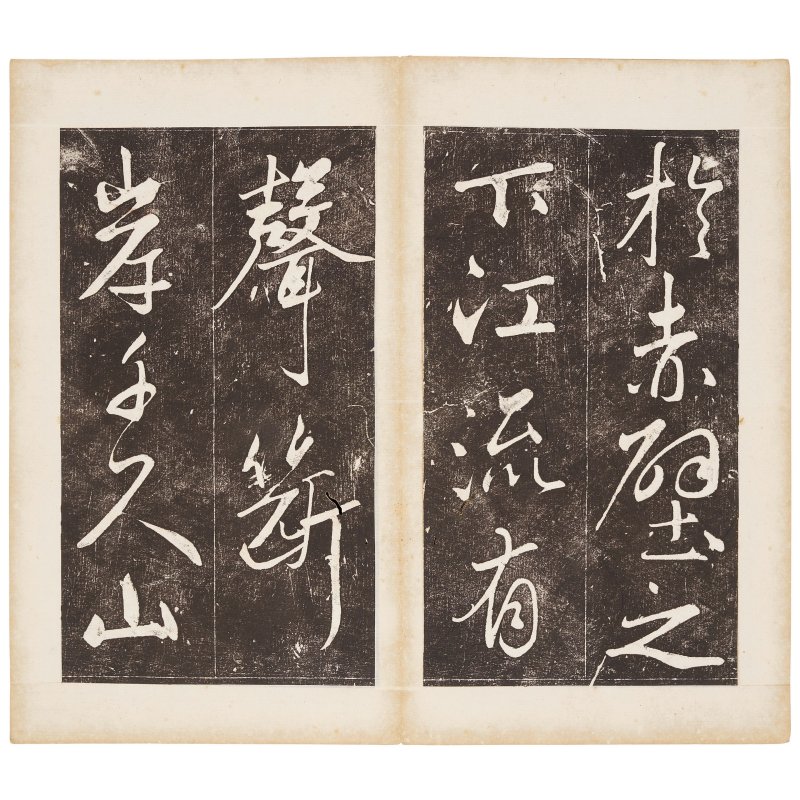 於赤壁之
下江流有
聲斷
岸千尺山